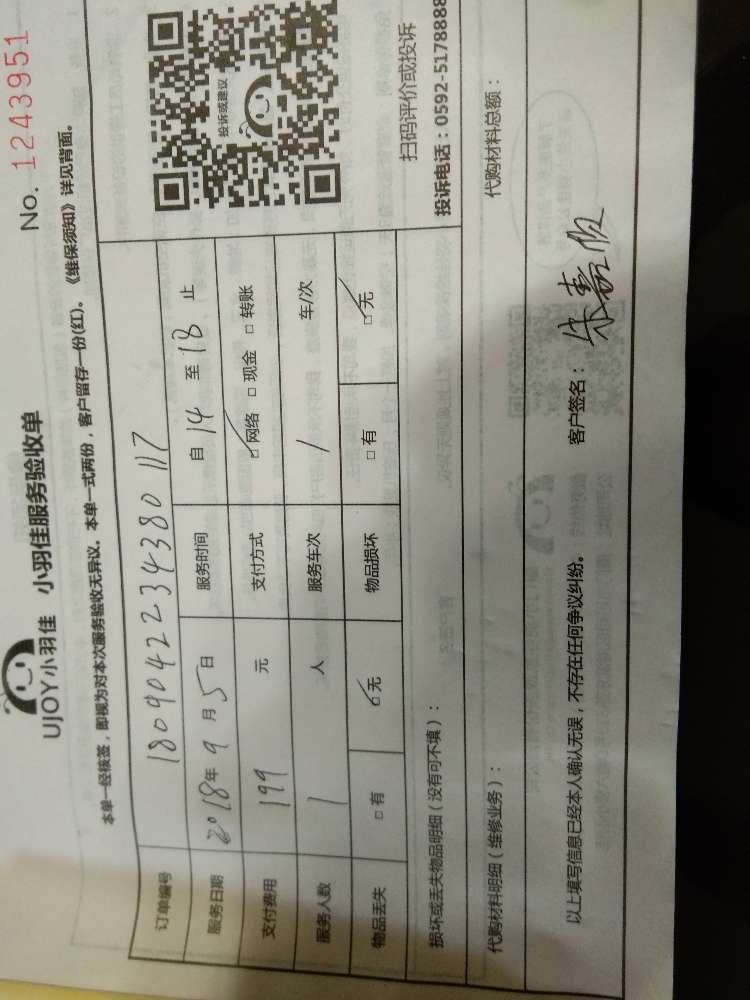 No. 1243951
UJOY小羽佳 小羽佳服务验收单
本单一经核签，即视为对本次服务验收无异议。本单一式两份，客户留存一份(红)。《维保须知》详见背面。
订单编号 18090422343380117
服务日期 2018年9月5日 服务时间 自14至18止
支付费用 199 元 支付方式 □网络 □现金 □转账
服务人数 1 人 服务车次 1 车/次
物品丢失 □有 □无 物品损坏 □有 □无
投诉或建议
扫码评价或投诉
投诉电话：0592-5178888
损坏或丢失物品明细（没有可不填）：
代购材料明细（维修业务）： 代购材料总额：
以上填写信息已经本人确认无误，不存在任何争议纠纷。 客户签名：